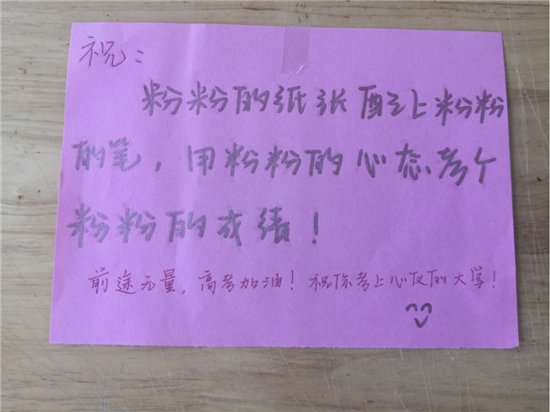 祝:
粉粉的纸张配上粉粉
的笔，用粉粉的心态考个
粉粉的成绩！
前途无量，高考加油！祝你考上心仪的大学！